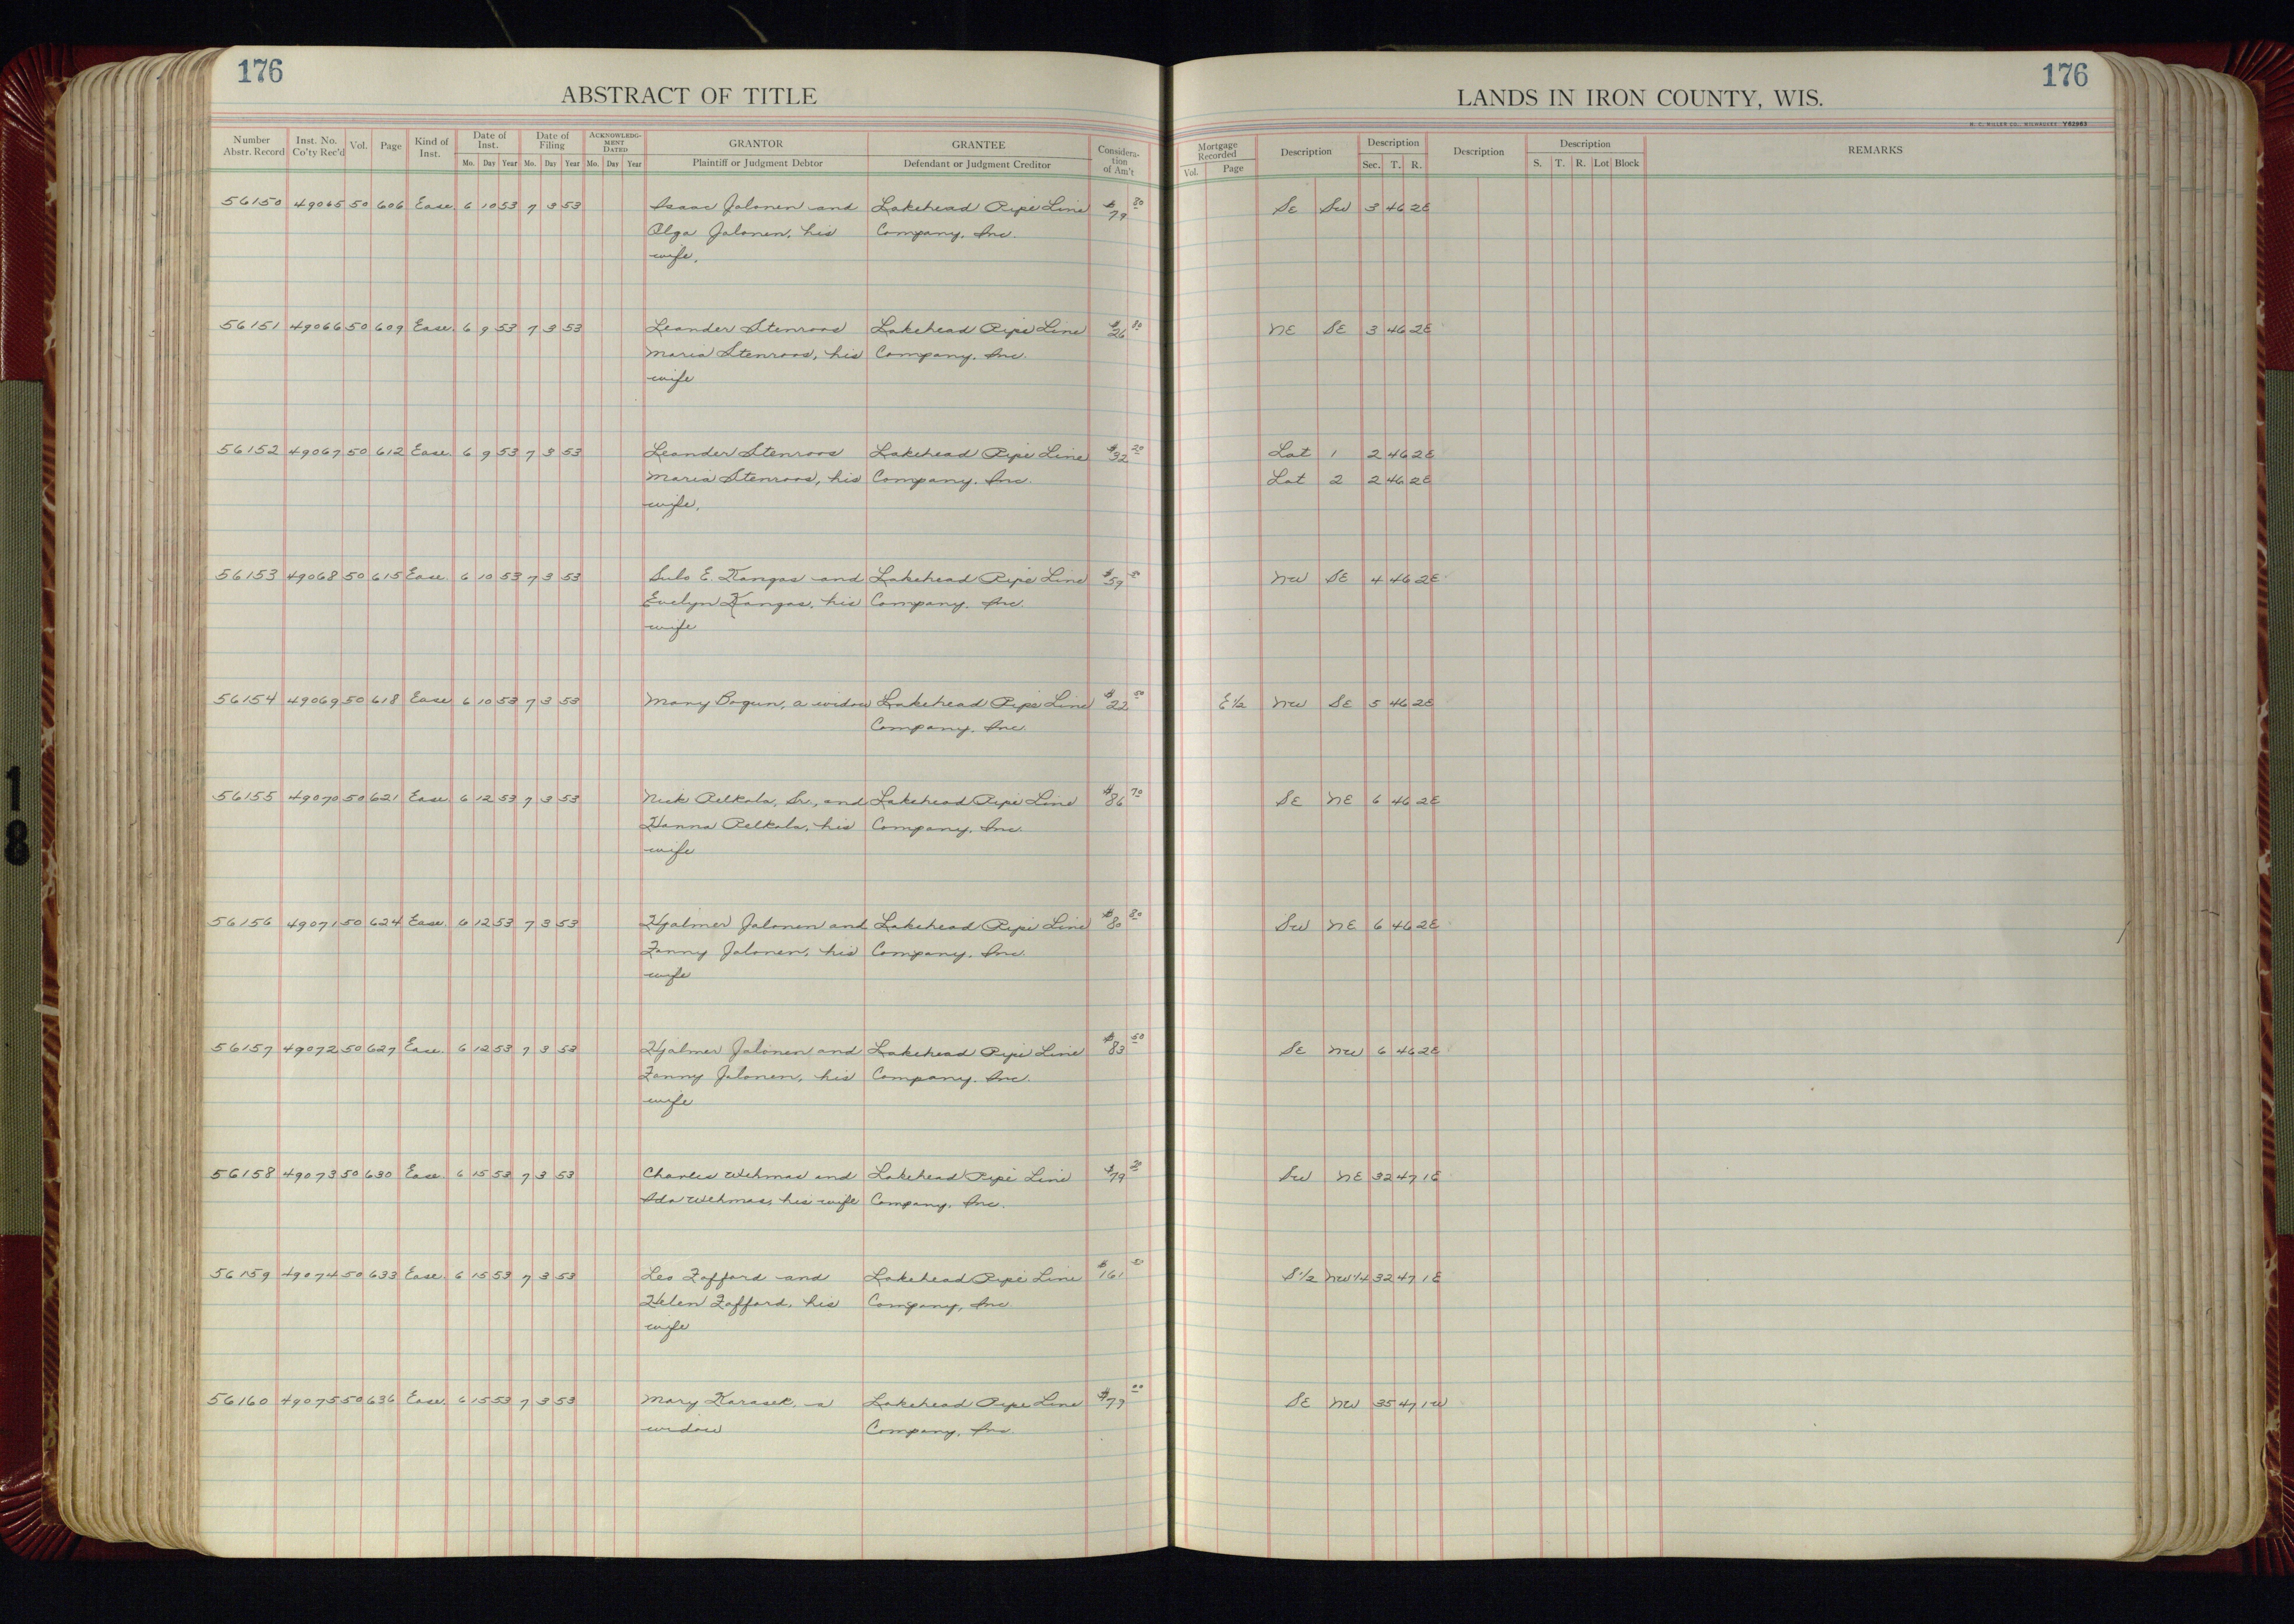 176
176
ABSTRACT OF TITLE
LANDS IN IRON COUNTY, WIS.
Number Abstr. Record Inst. No. Co'ty Rec'd Vol. Page Kind of Inst. Date of Inst. Mo. Day Year Date of Filing Mo. Day Year ACKNOWLEDGMENT DATED Mo. Day Year GRANTOR Plaintiff or Judgment Debtor GRANTEE Defendant or Judgment Creditor Consideration of Am't
Mortgage Recorded Vol. Page Description Description Sec. T. R. Description Description S. T. R. Lot Block REMARKS
56150 49065 50 606 Ease. 6 10 53 7 3 53 Isaac Jalonen and Lakehead Pipe Line $79 20 SE SW 3 46 2E
Olga Jalonen, his Company, Inc.
wife.
56151 49066 50 609 Ease. 6 9 53 7 3 53 Leander Stenroos Lakehead Pipe Line $26 80 NE SE 3 46 2E
Maria Stenroos, his Company, Inc.
wife
56152 49067 50 612 Ease. 6 9 53 7 3 53 Leander Stenroos Lakehead Pipe Line $32 20 Lot 1 2 46 2E
Maria Stenroos, his Company, Inc. Lot 2 2 46 2E
wife.
56153 49068 50 615 Ease. 6 10 53 7 3 53 Sulo E. Kangas and Lakehead Pipe Line $59 NW SE 4 46 2E
Evelyn Kangas, his Company, Inc.
wife
56154 49069 50 618 Ease 6 10 53 7 3 53 Mary Bogun, a widow Lakehead Pipe Line $22 50 E 1/2 NW SE 5 46 2E
Company, Inc.
56155 49070 50 621 Ease. 6 12 53 7 3 53 Nick Pelkola, Sr., and Lakehead Pipe Line $86 70 SE NE 6 46 2E
Hanna Pelkola, his Company, Inc.
wife
56156 49071 50 624 Ease. 6 12 53 7 3 53 Hjalmer Jalonen and Lakehead Pipe Line $80 80 SW NE 6 46 2E
Fanny Jalonen, his Company, Inc.
wife
56157 49072 50 627 Ease. 6 12 53 7 3 53 Hjalmer Jalonen and Lakehead Pipe Line $83 50 SE NW 6 46 2E
Fanny Jalonen, his Company, Inc.
wife
56158 49073 50 630 Ease 6 15 53 7 3 53 Charles Wehmas and Lakehead Pipe Line $79 SW NE 32 47 1E
Ida Wehmas, his wife Company, Inc.
56159 49074 50 633 Ease. 6 15 53 7 3 53 Leo Zafford and Lakehead Pipe Line $161 S 1/2 NW 1/4 32 47 1E
Helen Zafford, his Company, Inc
wife
56160 49075 50 636 Ease. 6 15 53 7 3 53 Mary Karasek, a Lakehead Pipe Line $79 00 SE NW 35 47 1W
widow Company, Inc.
18